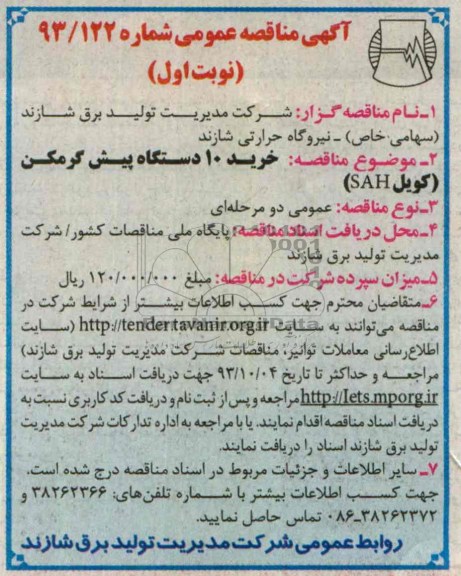 آگهی مناقصه عمومی شماره ۹۳/۱۲۲
(نوبت اول)
۱ـ نـام مناقصه گـزار: شـرکت مدیریـت تولیـد برق شـازند
(سهامی خاص) ـ نیروگاه حرارتی شازند
۲ـ موضـوع مناقصـه: خرید ۱۰ دسـتگاه پیـش گرمکـن
(کویل SAH)
۳ـ نوع مناقصه: عمومی دو مرحله‌ای
۴ـ محل دریافت اسناد مناقصه: پایگاه ملی مناقصات کشور/ شرکت
مدیریت تولید برق شازند
۵ـ میزان سپرده شرکت در مناقصه: مبلغ ۱۲۰/۰۰۰/۰۰۰ ریال
۶ـ متقاضیان محترم جهت کسـب اطلاعات بیشتـر از شرایط شرکت در
مناقصه می‌توانند به سـایت http://tender.tavanir.org.ir (سـایت
اطلاع‌رسانی معاملات توانیر، مناقصات شـرکت مدیریت تولید برق شازند)
مراجعـه و حداکثر تا تاریخ ۹۳/۱۰/۰۴ جهت دریافت اسـناد به سـایت
http://Iets.mporg.ir مراجعه و پس از ثبت نام و دریافت کد کاربری نسبت به
دریافت اسناد مناقصه اقدام نمایند. یا با مراجعه به اداره تدارکات شرکت مدیریت
تولید برق شازند اسناد را دریافت نمایند.
۷ـ سایر اطلاعات و جزئیات مربوط در اسناد مناقصه درج شده است.
جهت کسـب اطلاعات بیشتر با شـماره تلفن‌های: ۳۸۲۶۲۳۶۶ و
۰۸۶ـ۳۸۲۶۲۳۷۲ تماس حاصل نمایید.
روابط عمومی شرکت مدیریت تولید برق شازند